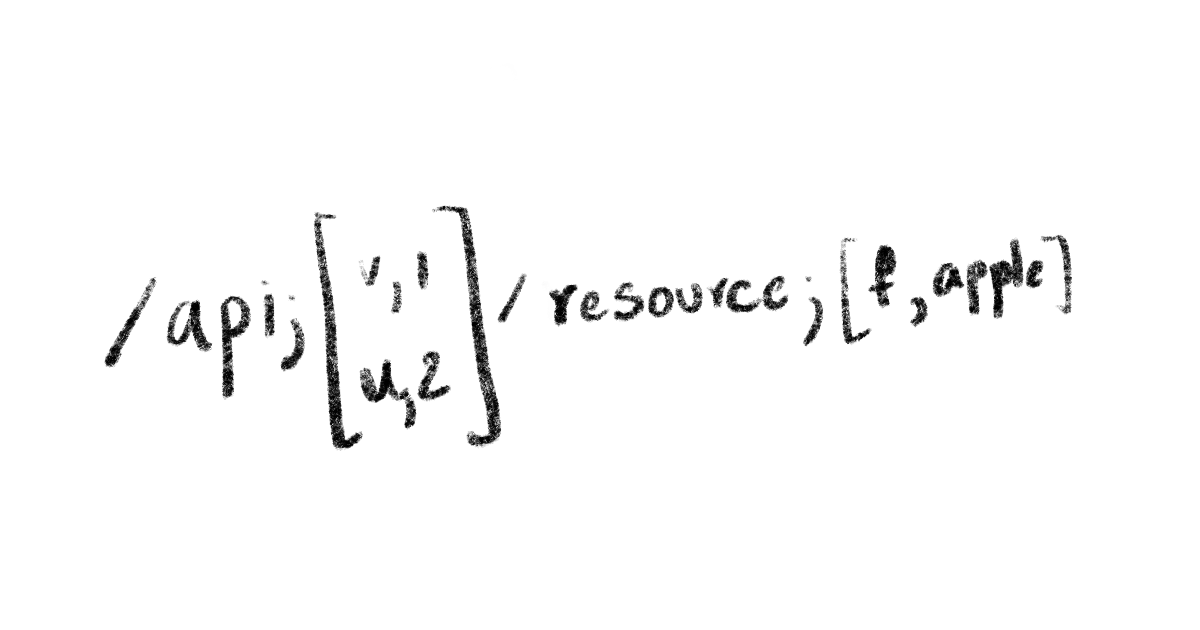 /api;[v,1
u,2]/resource;[f,apple]